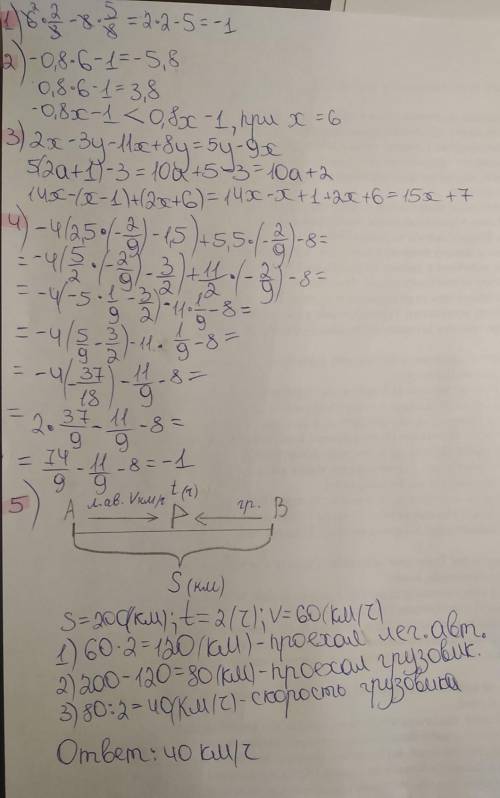 1) 6² · 2/8 - 8 · 5/8 = 2·2-5=-1
2) -0,8·6-1=-5,8
0,8·6-1=3,8
-0,8x-1 < 0,8x-1, при x=6
3) 2x-3y-11x+8y=5y-9x
5(2a+1)-3=10a+5-3=10a+2
14x-(x-1)+(2x+6)=14x-x+1+2x+6=15x+7
4) -4(2,5·(-2/9)-1,5)+5,5·(-2/9)-8=
=-4(5/2·(-2/9)-3/2)+11/2·(-2/9)-8=
=-4(-5·1/9-3/2)-11·1/9-8=
=-4(5/9-3/2)-11·1/9-8=
=-4(-37/18)-11/9-8=
=2·37/9-11/9-8=
=74/9-11/9-8=-1
5) A л.ав. V км/ч t(ч) P гр. B
S(км)
S=200(км); t=2(ч); V=60(км/ч)
1) 60·2=120(км)-проехал лег.авт.
2) 200-120=80(км)-проехал грузовик.
3) 80:2=40(км/ч)-скорость грузовика
Ответ: 40 км/ч